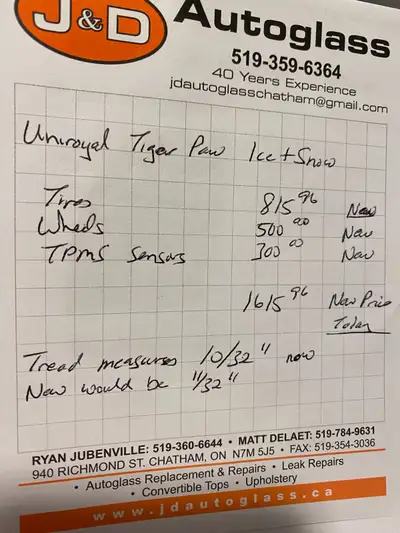 J&D Autoglass
519-359-6364
40 Years Experience
jdautoglasschatham@gmail.com
Uniroyal Tiger Paw Ice + Snow
Tires 815.96 New
Wheels 500.00 New
TPMS Sensors 300.00 New
1615.96 New Price
Today
Tread measures 10/32" now
New would be 11/32"
RYAN JUBENVILLE: 519-360-6644 • MATT DELAET: 519-784-9631
940 RICHMOND ST. CHATHAM, ON N7M 5J5 • FAX: 519-354-3036
• Autoglass Replacement & Repairs • Leak Repairs
• Convertible Tops • Upholstery
www.jdautoglass.ca